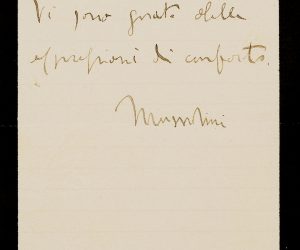 Vi sono grato delle
espressioni di conforto.
Mussolini